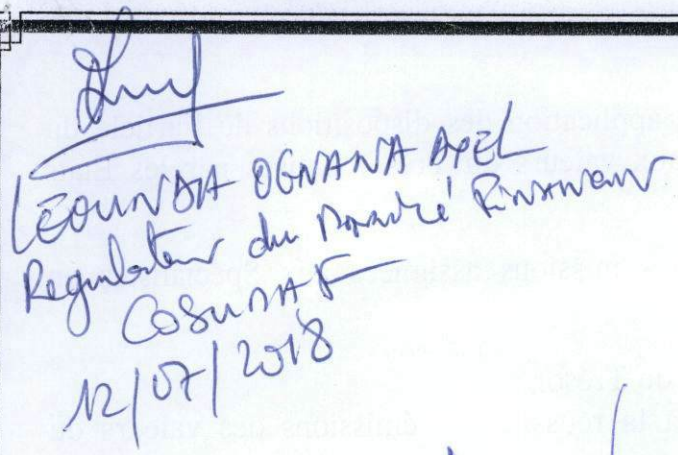 LEOUNDA OGNANA AXEL
Regulateur du Marché Financier
COSUMAF
12/07/2018